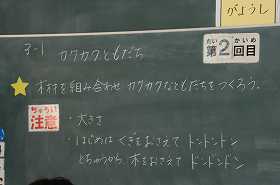 がようし
3-1 カクカクともだち
だい かいめ
第2回目
木材を組み合わせ カクカクなともだちをつくろう。
ちゅうい
注意
・大きさ
・はじめは くぎをおさえて トントントン
とちゅうから 木をおさえて ドンドンドン